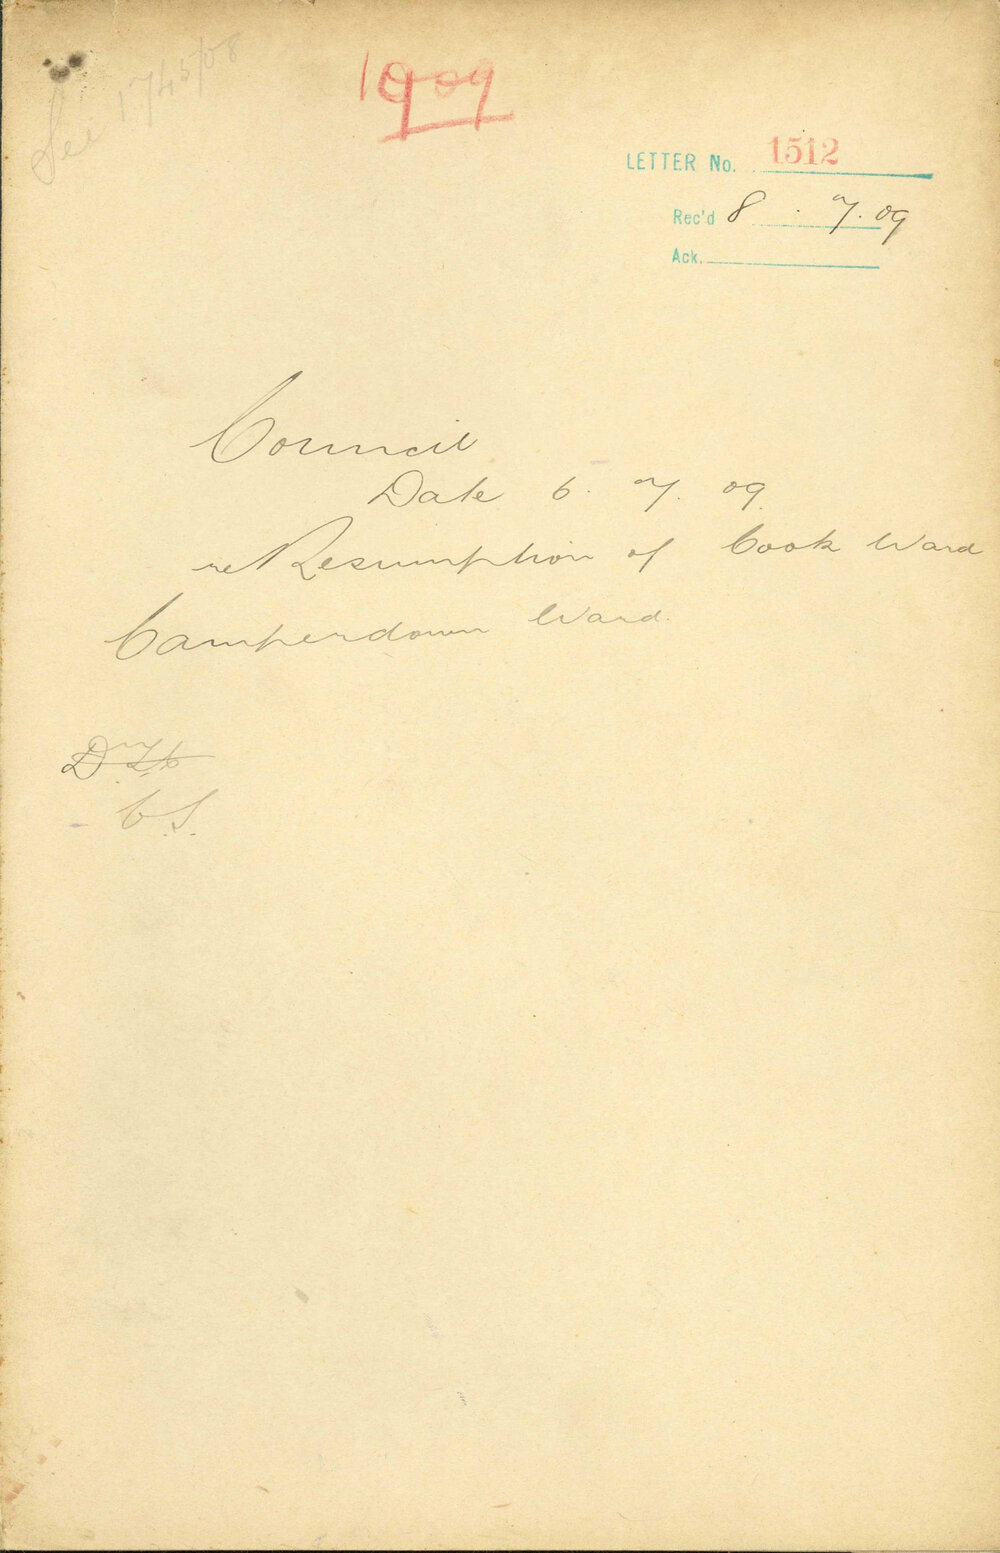 See 1745/08
1909
LETTER No. 1512
Rec'd 8 . 7. 09
Ack.
Council
Date 6. 7. 09.
re Resumption of Cook Ward
Camperdown Ward.
C.S.